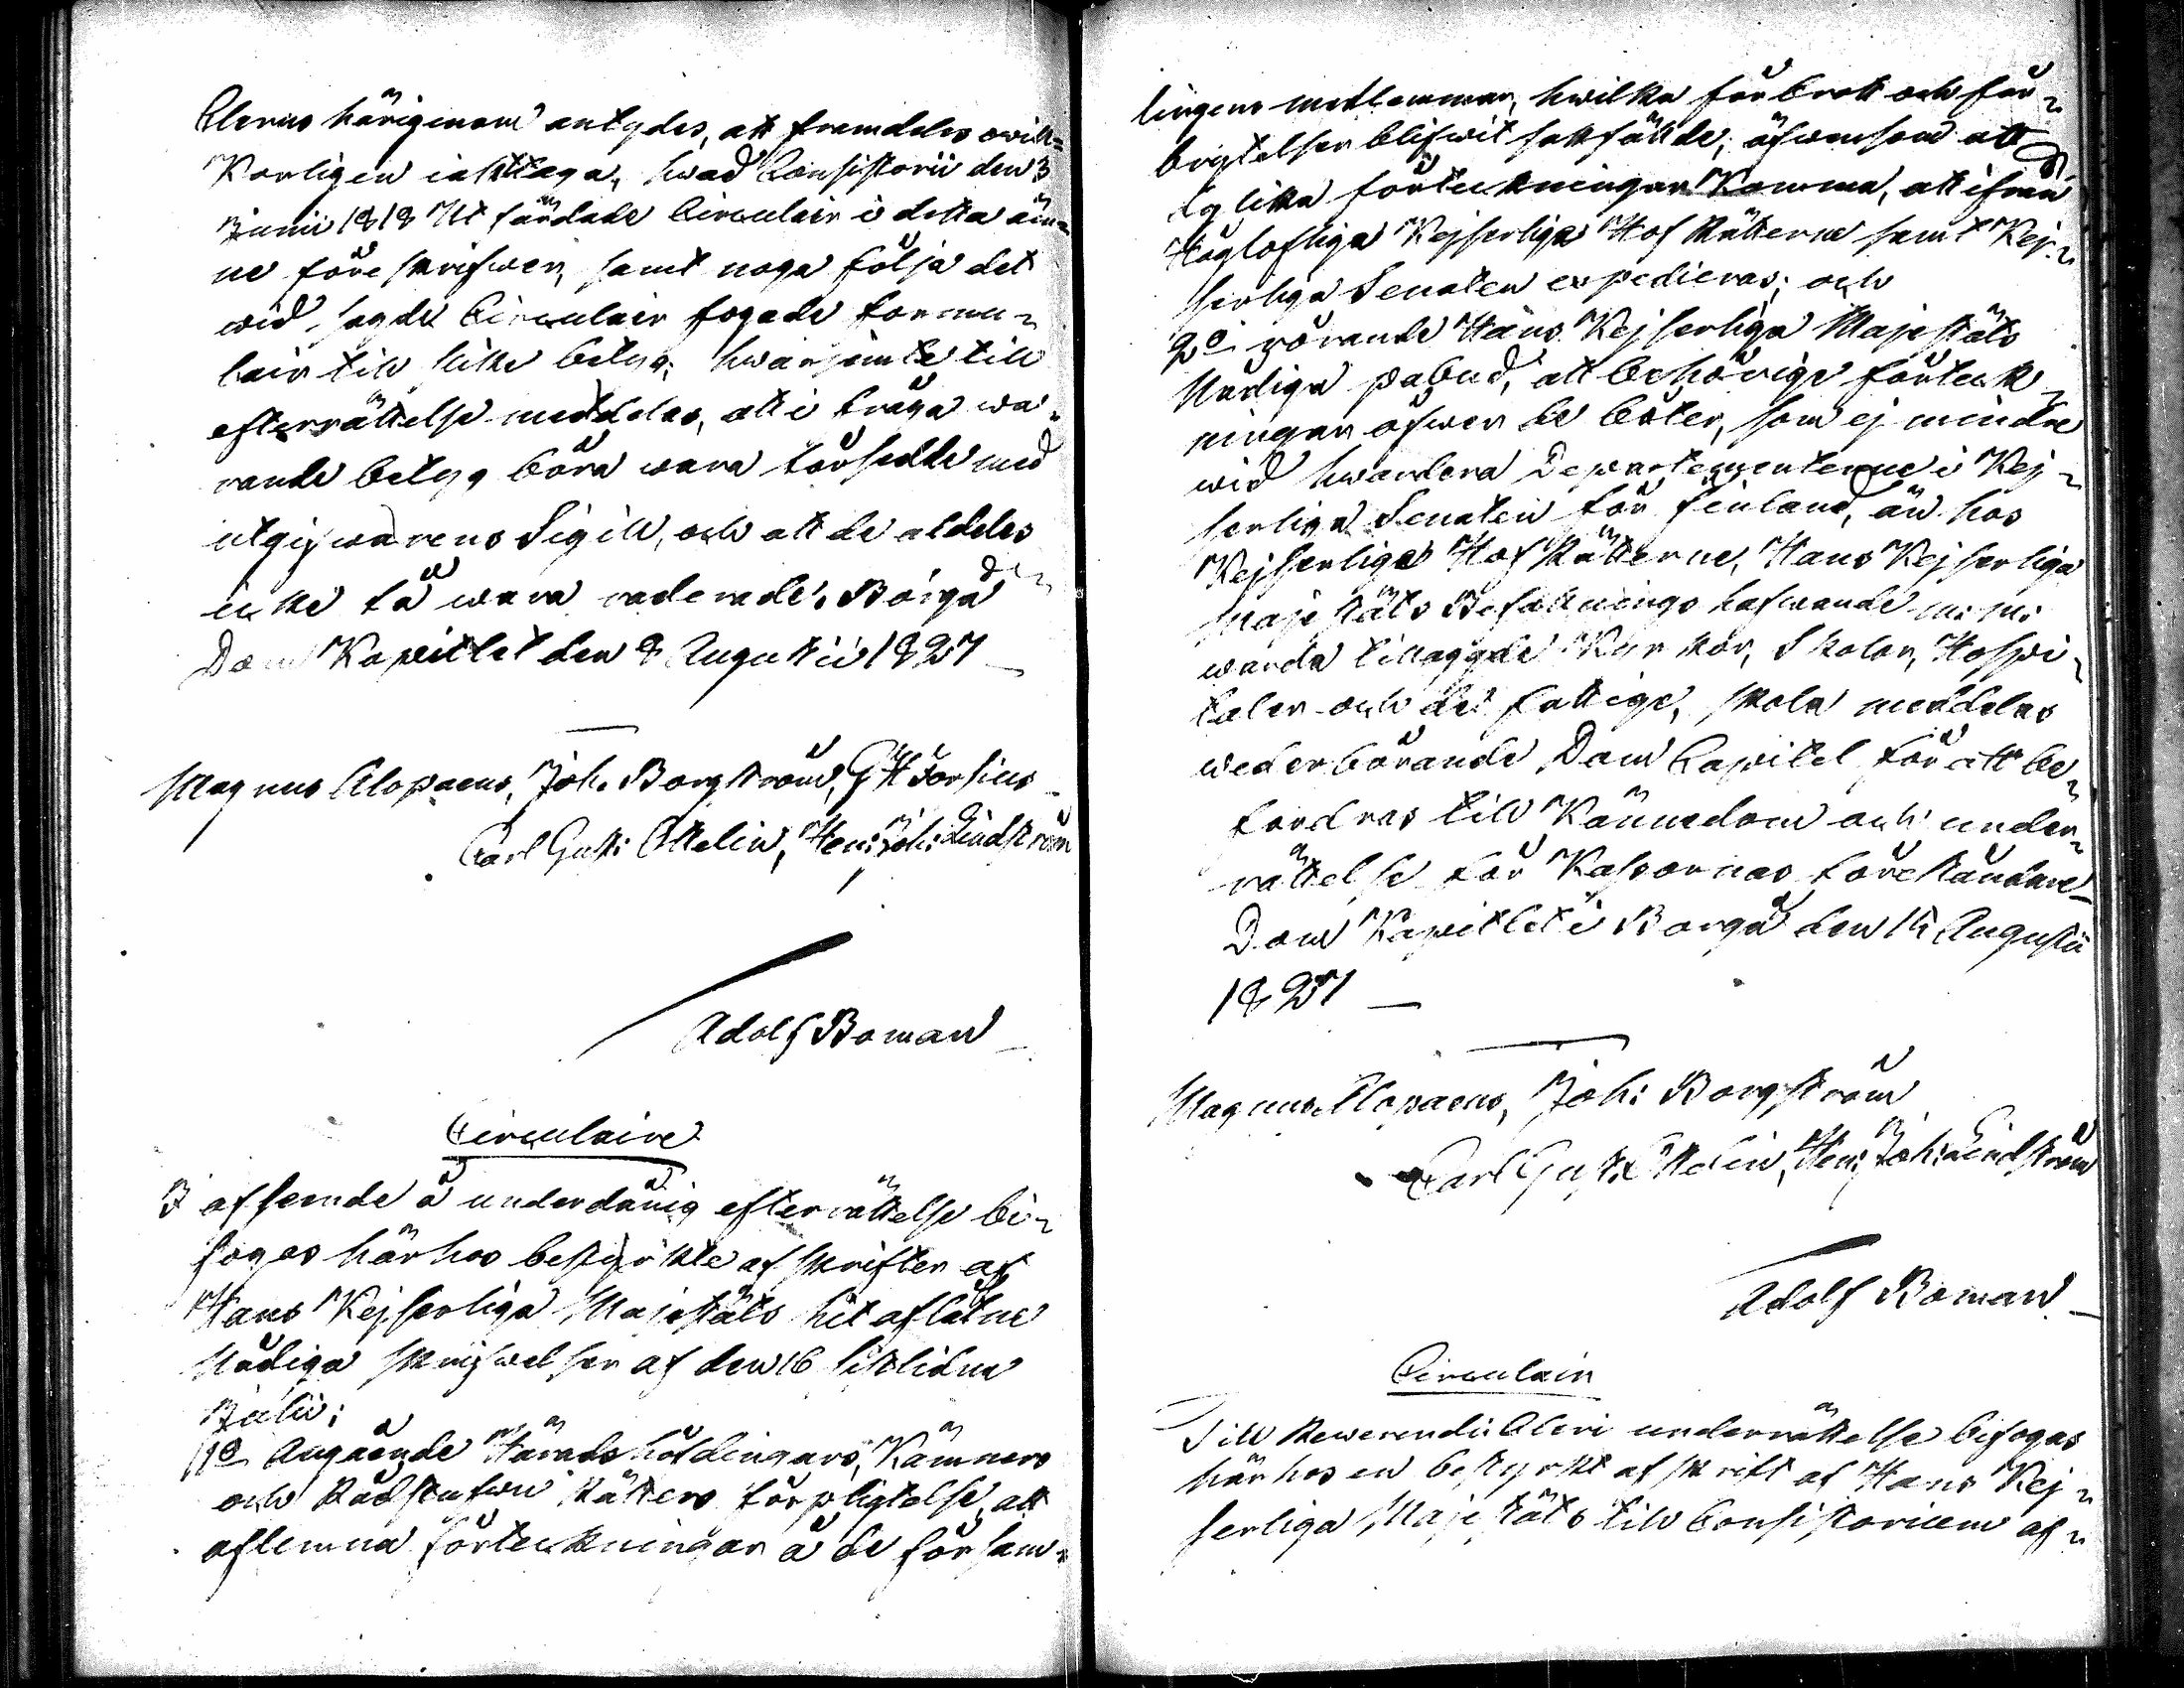 Clerus härigenom antydes, att framdeles owill=
korligen iakttaga, hwad Consistorii den 3
Junii 1818 Ut färdade Circulair i detta äm=
ne föreskrifwer, samt noga följa det
wid sagde Circulair fogade formu=
lair till slike betyg; hwarjemte till
efterrättelse meddelas, att i fråga wa=
rande betyg böra wara försedde med
utgifwarens Sigill, och att de aldeles
icke få wara raderade. Borgå
Dom Kapitlet den 8 Augustii 1827
Magnus Alopaeus, Joh. Borgström, G H Forsius
Carl Gust: Ottelin, Hen: Joh: Lindström
Adolf Boman
Circulaire
I afseende å underdånig efterrättelse bi=
fogas härhos bestyrkte afskrifter af
Hans Kejserliga Majestäts hit aflåtne
Nådiga skrifwelser af den 16 sistlidne
Julii;
1o Angående Häradshöfdingars, Kämners
och Rådstufwu Rätters förpligtelse, att
aflemna förteckningar å de försam=
lingens medlemmar, hwilka för brott och för=
brytelser blifwit sakfällde, äfwensom att
dylika förteckningar komma, att ifrån
Högloflige Kejserliga Hof Rätterne samt Kej=
serliga Senaten expedieras; och
2o rörande Hans Kejserliga Majestäts
Nådiga påbud, att behörige förteck=
ningar öfwer de böter, som ej mindre
wid hwardera Departementerne i Kej=
serliga Senaten för Finland, än hos
Kejserliga Hof Rätterne, Hans Kejserliga
Majestäts Befallningshafwande m: m:
warda tillagde Kyrkor, Skolor, Hospi=
taler och de fattige, skola meddelas
wederbörande Dom Capitel för att be=
fordras till Kännedom och under=
rättelse för Kassornas föreståndare
Dom Kapitlet i Borgå den 14 Augustii
1827
Magnus Alopaeus, Joh: Borgström
Carl Gust: Ottelin, Hen: Joh: Lindström
Adolf Boman
Circulair
Till Rewerendi Cleri underrättelse bifogas
härhos en bestyrkt afskrift af Hans Kej=
serliga Majestäts till Consistorium af=